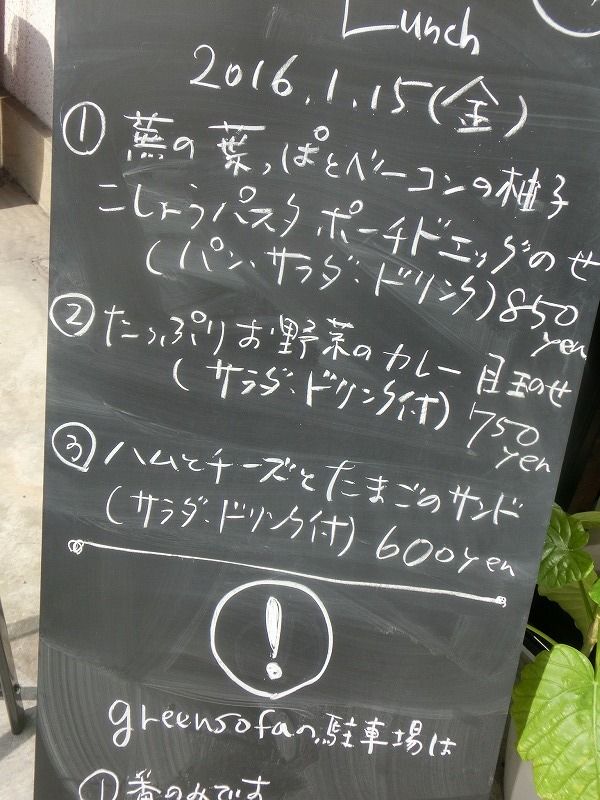 Lunch
2016.1.15(金)
① 蕪の葉っぱとベーコンの柚子
こしょうパスタ ポーチドエッグのせ
(パン、サラダ、ドリンク) 850
yen
② たっぷりお野菜のカレー 目玉のせ
(サラダ、ドリンク付) 750
yen
③ ハムとチーズとたまごのサンド
(サラダ、ドリンク付) 600yen
!
greensofaの駐車場は
①番のみです